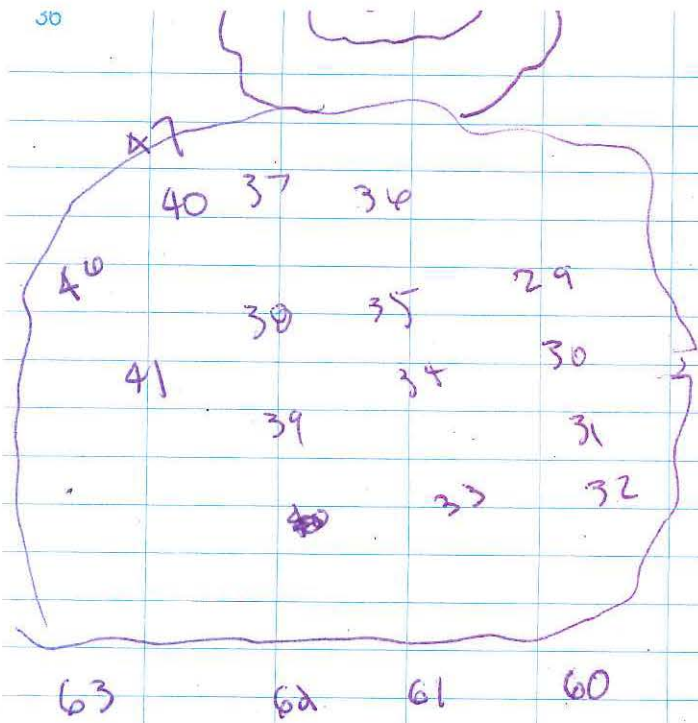 47
40 37 36
46 29
38 35
30
41 34
39 31
33 32
63 62 61 60